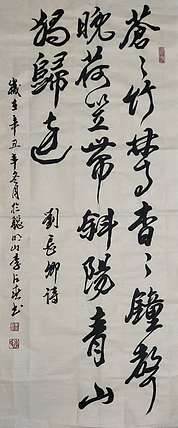 蒼〻竹林寺杳〻鐘聲
晚荷笠帶斜陽青山
獨歸遠
劉長卿詩
歲在辛丑年冬月於 山李 书